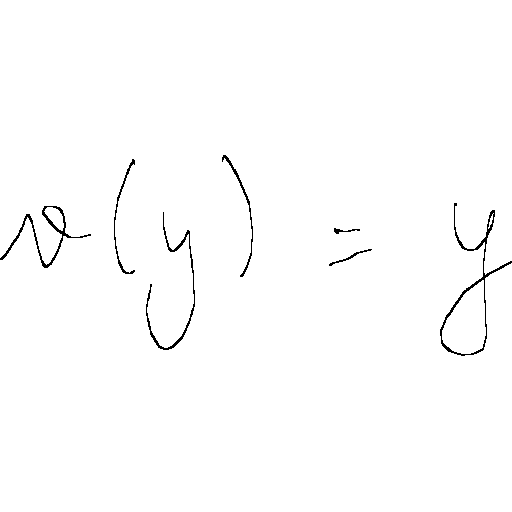 v(y) = y